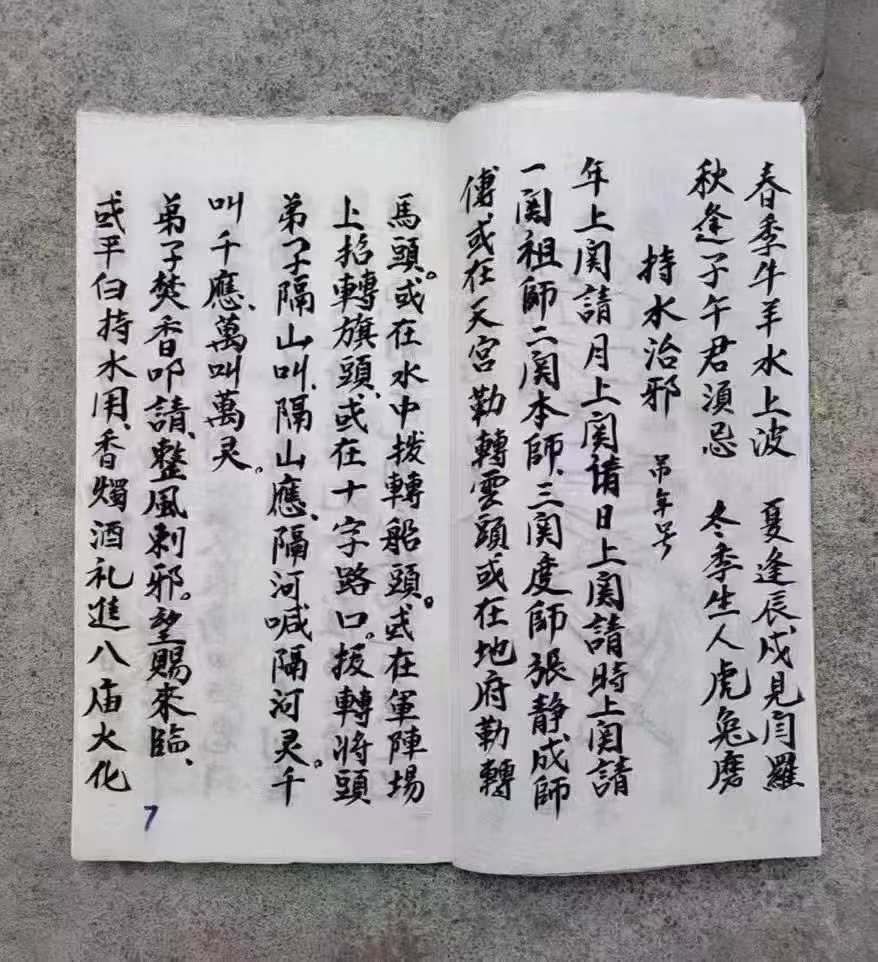 春季牛羊水上波　夏逢辰戌見閂羅
秋逢子午君須忌　冬季生人虎兔磨
持水治邪　吊年号
年上関請月上関請日上関請時上関請
一関祖師二関本師、三関度師張静成師
傅、或在天宮勒轉雲頭或在地府勒轉
馬頭。或在水中拨轉船頭。或在軍陣場
上招轉旗頭、或在十字路口。拔轉將頭
弟子隔山叫、隔山應、隔河喊隔河灵。千
叫千應、萬叫萬灵。
弟子焚香叩請、整風刺邪。望賜來臨、
或平白持水用、香燭酒礼進八庙火化
7